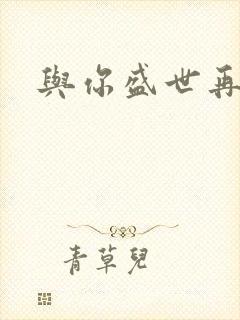 與你盛世再
青草兒